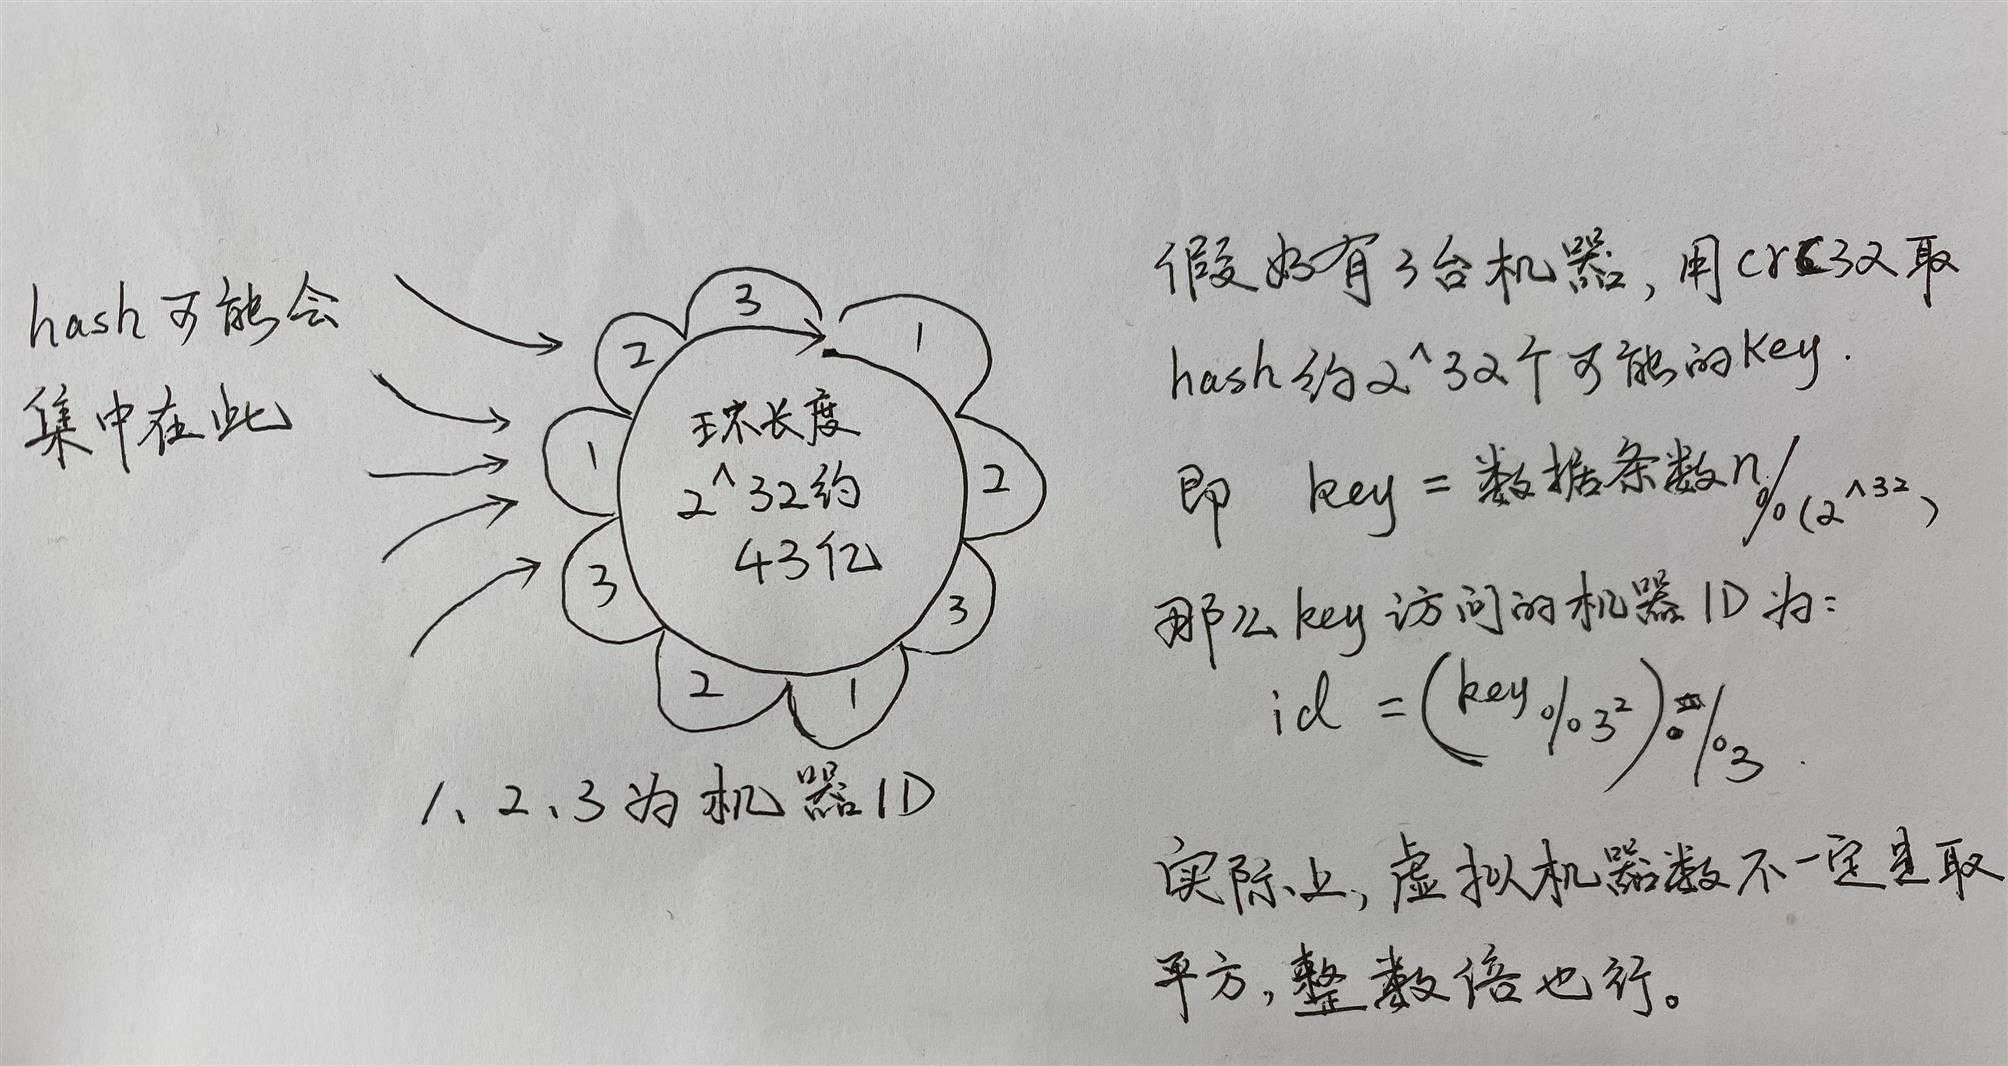 hash可能会
集中在此
3
1
2
3
1
2
3
1
2
环长度
2^32约
43亿
1、2、3为机器ID
假如有3台机器,用crc32取
hash约2^32个可能的Key.
即 key = 数据条数n%(2^32)
那么key访问的机器ID为:
id = (key%3²)%3
实际上,虚拟机器数不一定是取
平方,整数倍也行。